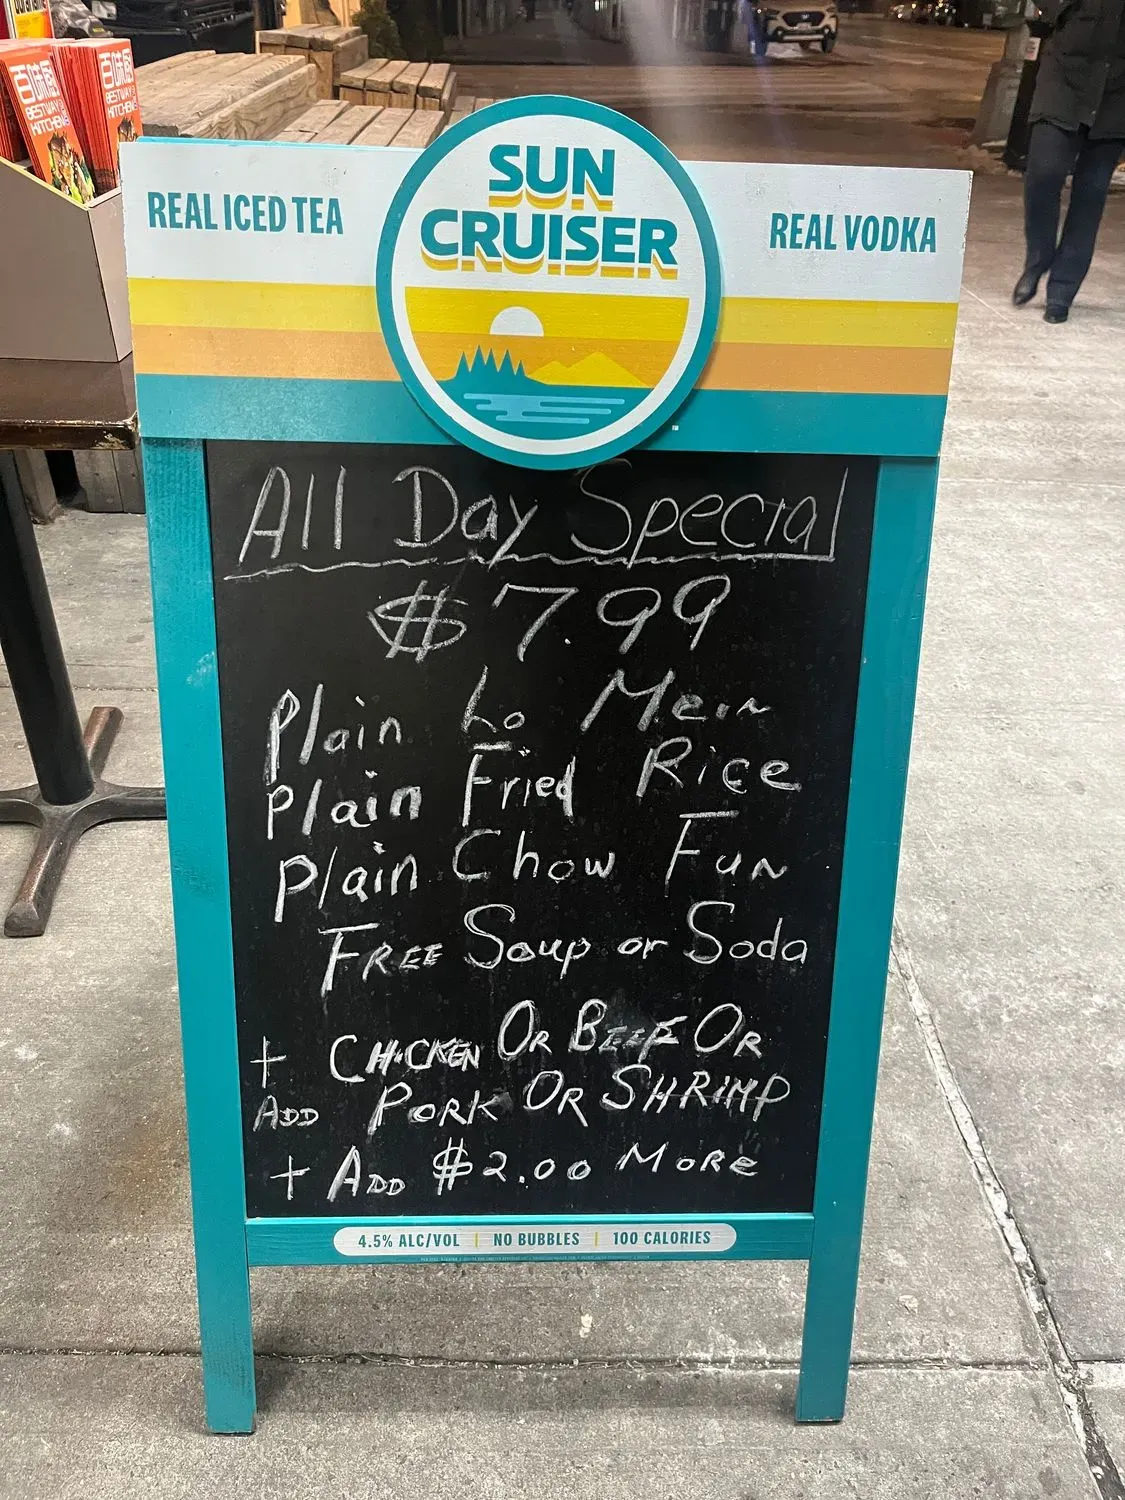 百味廚
BESTWAY
KITCHEN
百味廚
BESTWAY
KITCHEN
REAL ICED TEA
SUN
CRUISER
REAL VODKA
All Day Special
$7.99
Plain Lo Mein
Plain Fried Rice
Plain Chow Fun
FREE Soup or Soda
+ CHICKEN OR BEEF OR
ADD PORK OR SHRIMP
+ ADD $2.00 MORE
4.5% ALC/VOL | NO BUBBLES | 100 CALORIES